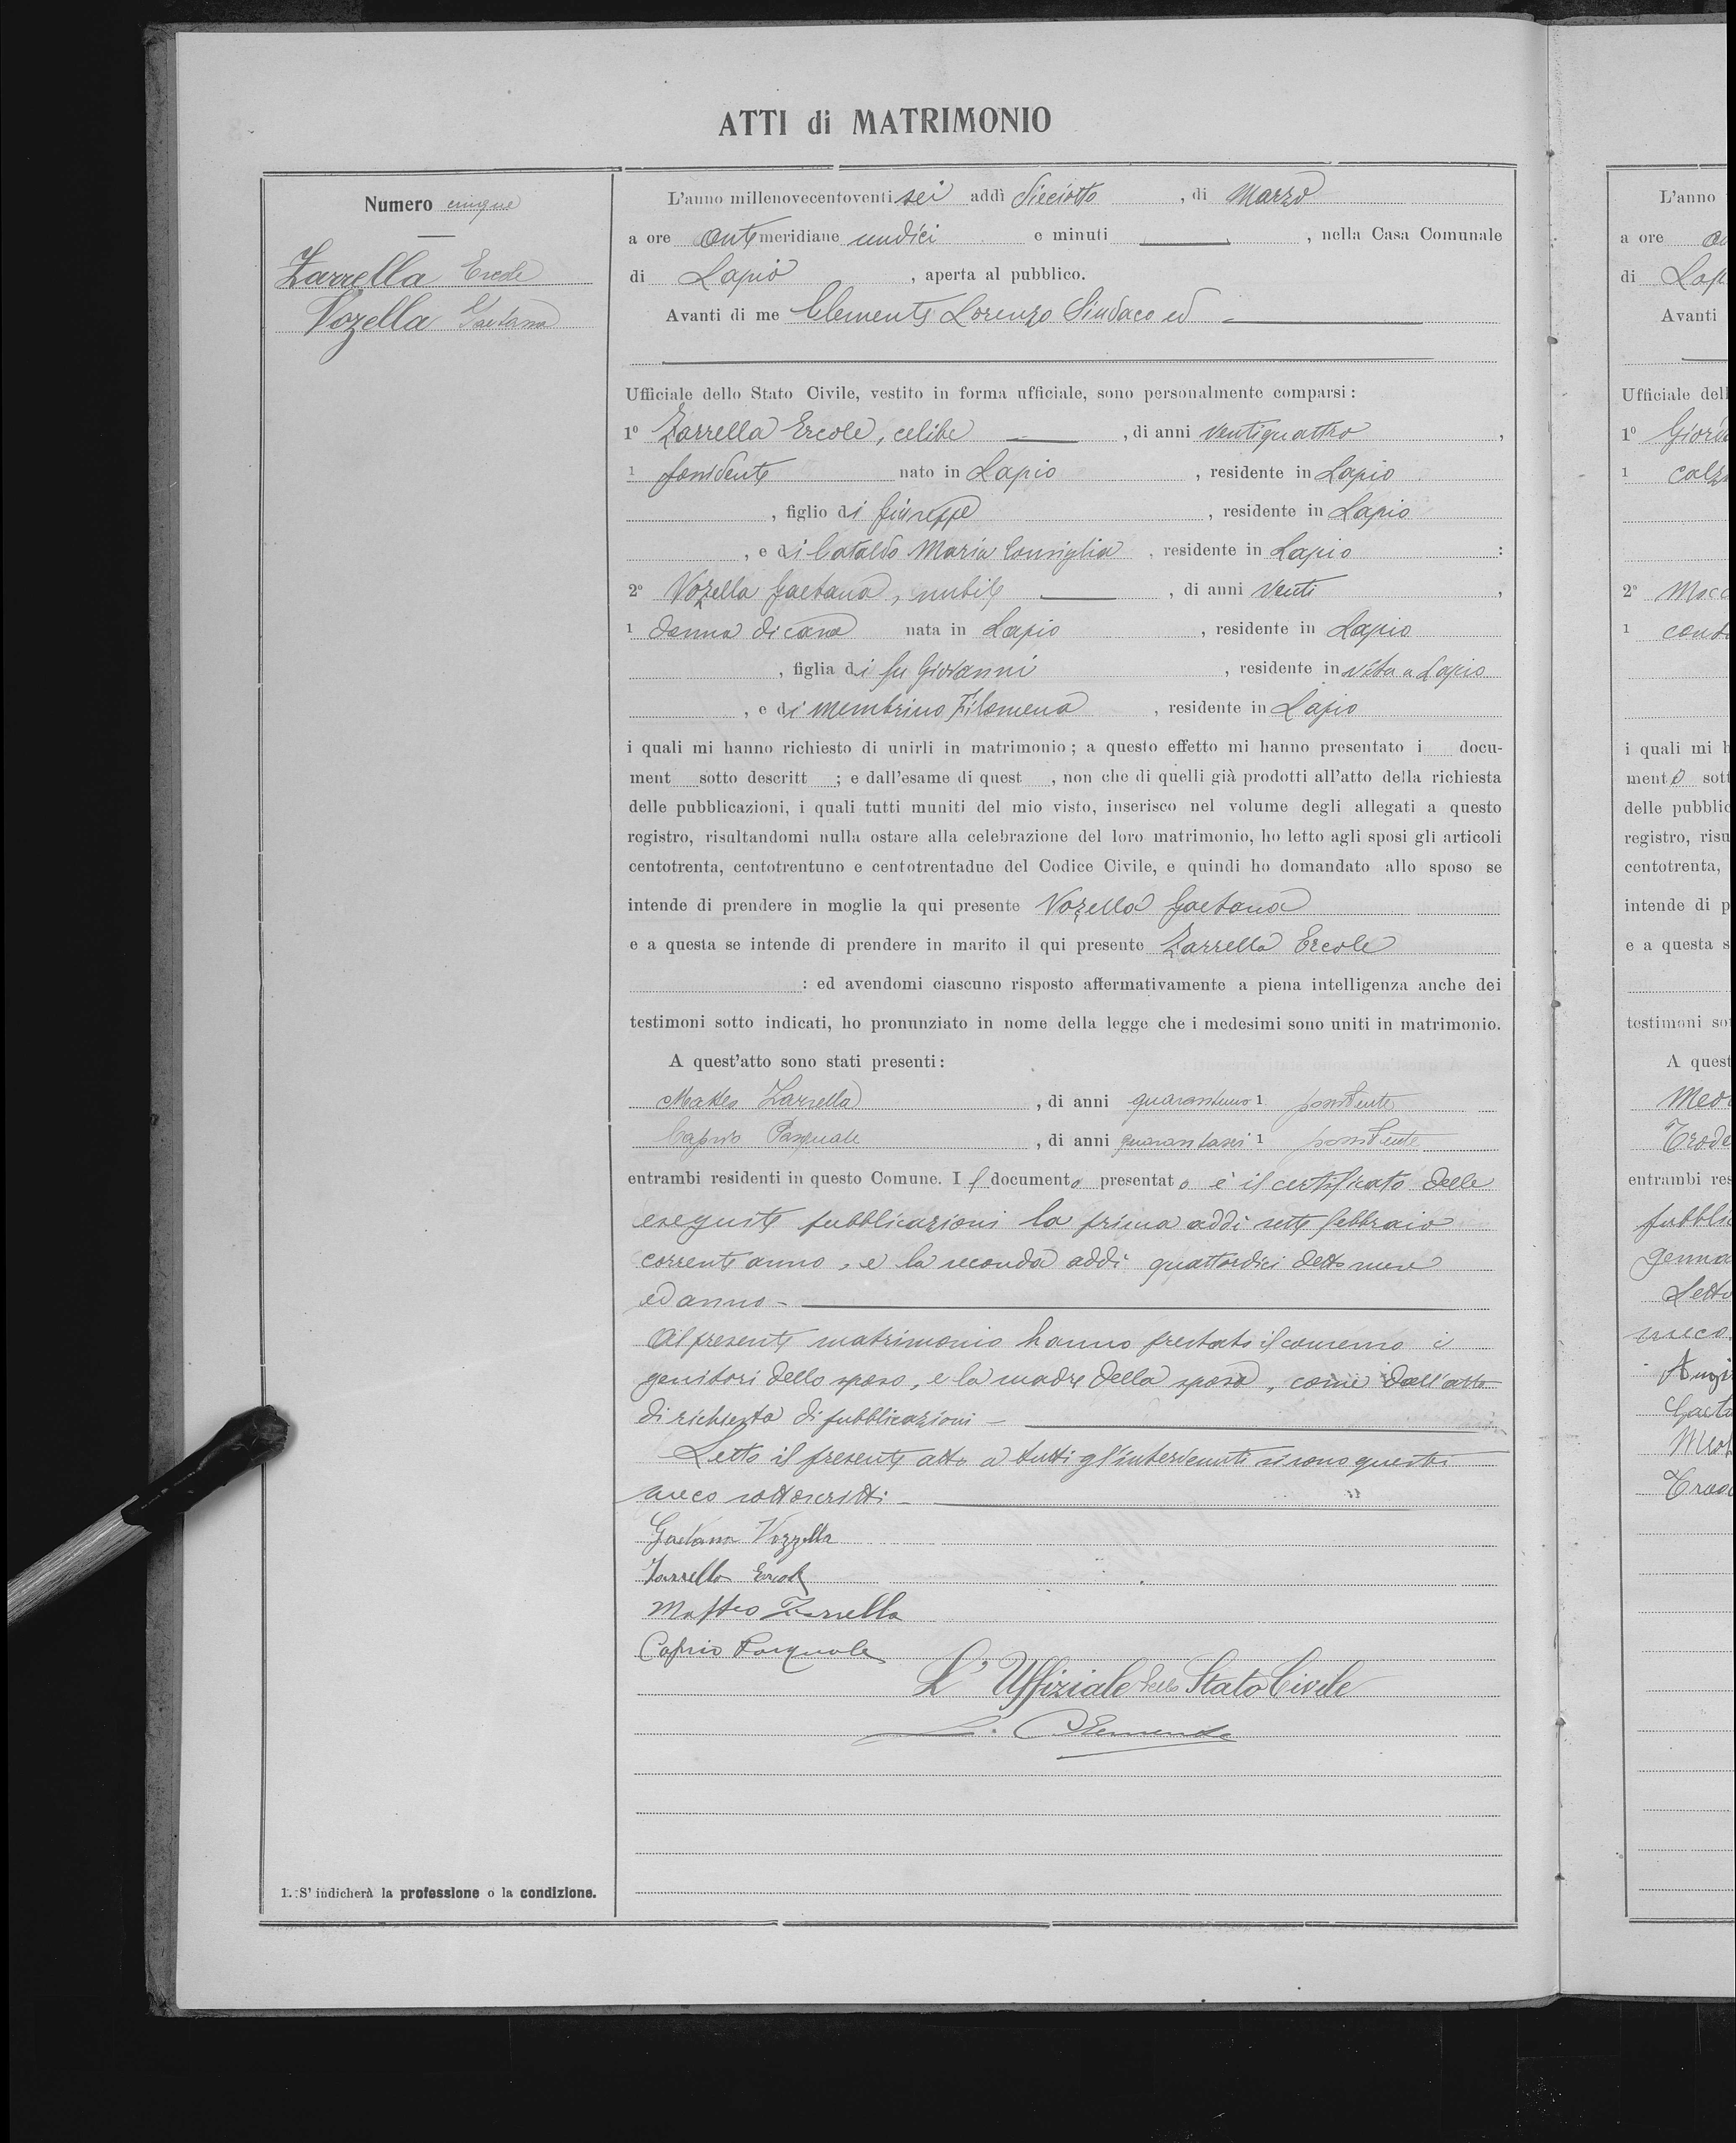 ATTI di MATRIMONIO
Numero cinque
Zarrella Ercole
Vozella Gaetana
L'anno millenovecentoventi sei addì dieciotto, di Marzo
a ore antimeridiane undici e minuti, nella Casa Comunale
di Lapio, aperta al pubblico.
Avanti di me Clemente Lorenzo Sindaco ed
Ufficiale dello Stato Civile, vestito in forma ufficiale, sono personalmente comparsi:
1º Zarrella Ercole, celibe, di anni ventiquattro,
1 possidente nato in Lapio, residente in Lapio
, figlio di Giuseppe, residente in Lapio
, e di Cataldo Maria Consiglia, residente in Lapio:
2º Vozella Gaetana, nubile, di anni venti,
1 donna di casa nata in Lapio, residente in Lapio
, figlia di fu Giovanni, residente in vita a Lapio
, e di Membrino Filomena, residente in Lapio
i quali mi hanno richiesto di unirli in matrimonio; a questo effetto mi hanno presentato i docu-
ment sotto descritt; e dall'esame di quest, non che di quelli già prodotti all'atto della richiesta
delle pubblicazioni, i quali tutti muniti del mio visto, inserisco nel volume degli allegati a questo
registro, risultandomi nulla ostare alla celebrazione del loro matrimonio, ho letto agli sposi gli articoli
centotrenta, centotrentuno e centotrentadue del Codice Civile, e quindi ho domandato allo sposo se
intende di prendere in moglie la qui presente Vozella Gaetana
e a questa se intende di prendere in marito il qui presente Zarrella Ercole
: ed avendomi ciascuno risposto affermativamente a piena intelligenza anche dei
testimoni sotto indicati, ho pronunziato in nome della legge che i medesimi sono uniti in matrimonio.
A quest'atto sono stati presenti:
Matteo Zarrella, di anni quarantuno 1 possidente
Caprio Pasquale, di anni quarantasei 1 possidente
entrambi residenti in questo Comune. Il documento presentato è il certificato delle
eseguite pubblicazioni la prima addì sette febbraio
corrente anno, e la seconda addì quattordici detto mese
ed anno -
Al presente matrimonio hanno prestato il consenso i
genitori dello sposo, e la madre della sposa, come dall'atto
di richiesta di pubblicazioni -
Letto il presente atto a tutti gl'intervenuti si sono questi
meco sottoscritti -
Gaetana Vozzella
Zarrella Ercole
Matteo Zarrella
Caprio Pasquale
L'Uffiziale dello Stato Civile
L. Clemente
1. S'indicherà la professione o la condizione.
L'anno
a ore
di Lap
Avanti
Ufficiale dell
1º Giord
1 calz
2º Mocc
1 cont
i quali mi h
mento sott
delle pubblic
registro, risu
centotrenta,
intende di p
e a questa s
testimoni so
A quest
entrambi res
pubbli
genna
Letto
meco